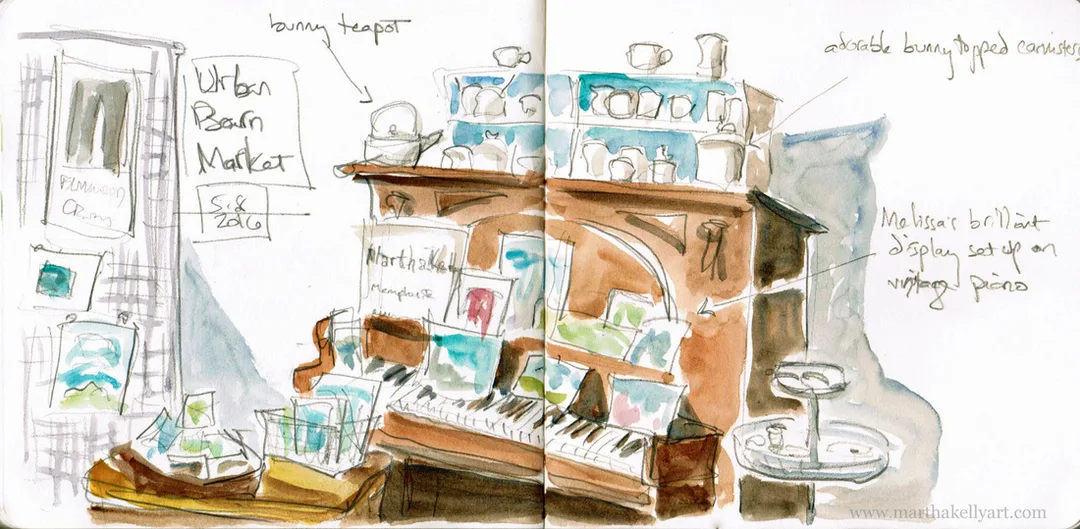 bunny teapot
adorable bunny topped cannisters
Urban
Barn
Market
5.8
2016
Melissa's brilliant
display set up on
vintage piano
Martha Kelly
Memphis TN
www.marthakellyart.com